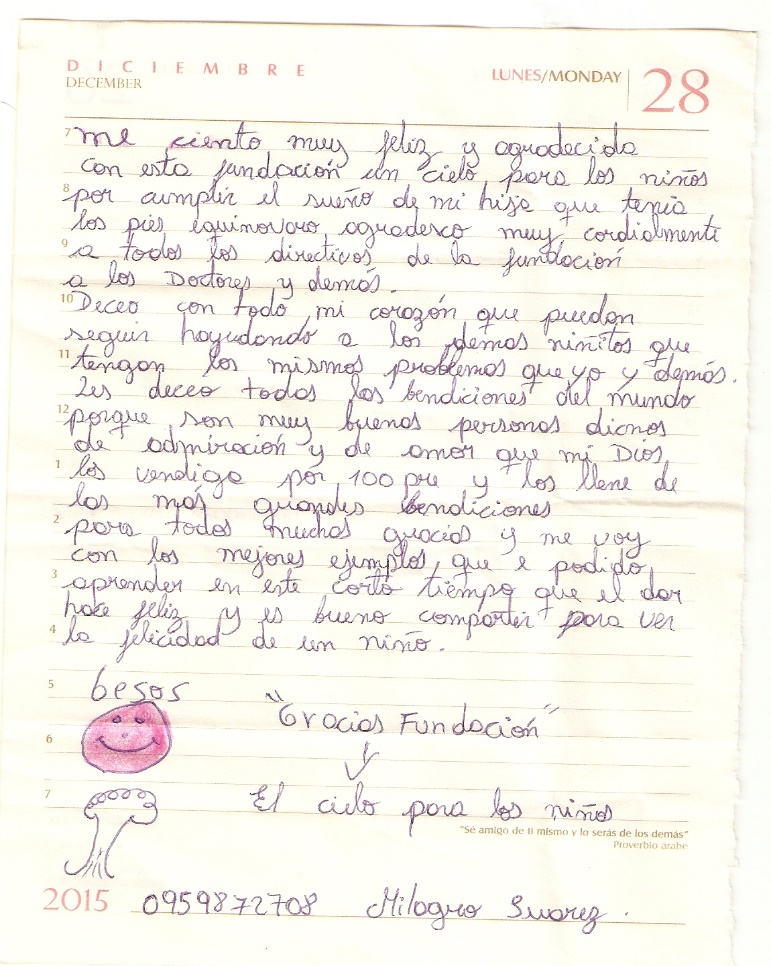 DICIEMBRE
DECEMBER
LUNES/MONDAY 28
7 me ciento muy feliz y agradecida
con esta fundación un cielo para los niños
8 por cumplir el sueño de mi hija que tenia
los pies equinovaro, agradesco muy cordialmente
9 a todos los directivos de la fundación
a los Doctores y demás.
10 Deceo con todo mi corazón que puedan
seguir hayudando a los demas niñitos que
11 tengan los mismos problemas que yo y demás.
Les deceo todas las bendiciones del mundo
12 porque son muy buenas personas dicnos
de admiración y de amor que mi Dios
1 los vendiga por 100pre y los llene de
las más grandes bendiciones
2 para todos muchas gracias y me voy
con los mejores ejemplos, que e podido
3 aprender en este corto tiempo que el dar
hace feliz y es bueno compartir para ver
4 la felicidad de un niño.
5 besos
"Gracias Fundación"
6
7 El cielo para los niños
"Sé amigo de ti mismo y lo serás de los demás"
Proverbio árabe
2015 0959872708 Milagro Suarez.